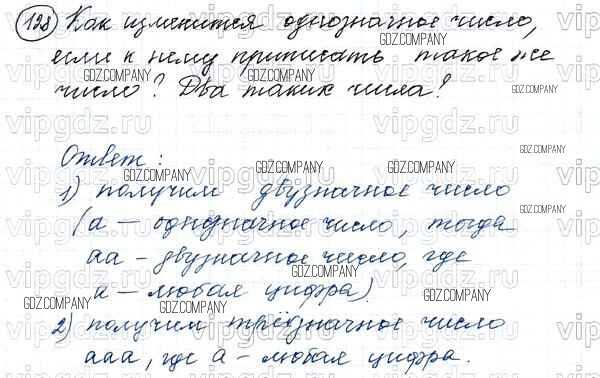 128 Как изменится однозначное число,
если к нему приписать такое же
число? Два таких числа?
Ответ:
1) получим двузначное число
(а — однозначное число, тогда
аа - двузначное число, где
а — любая цифра)
2) получим трёзначное число
ааа, где а - любая цифра.